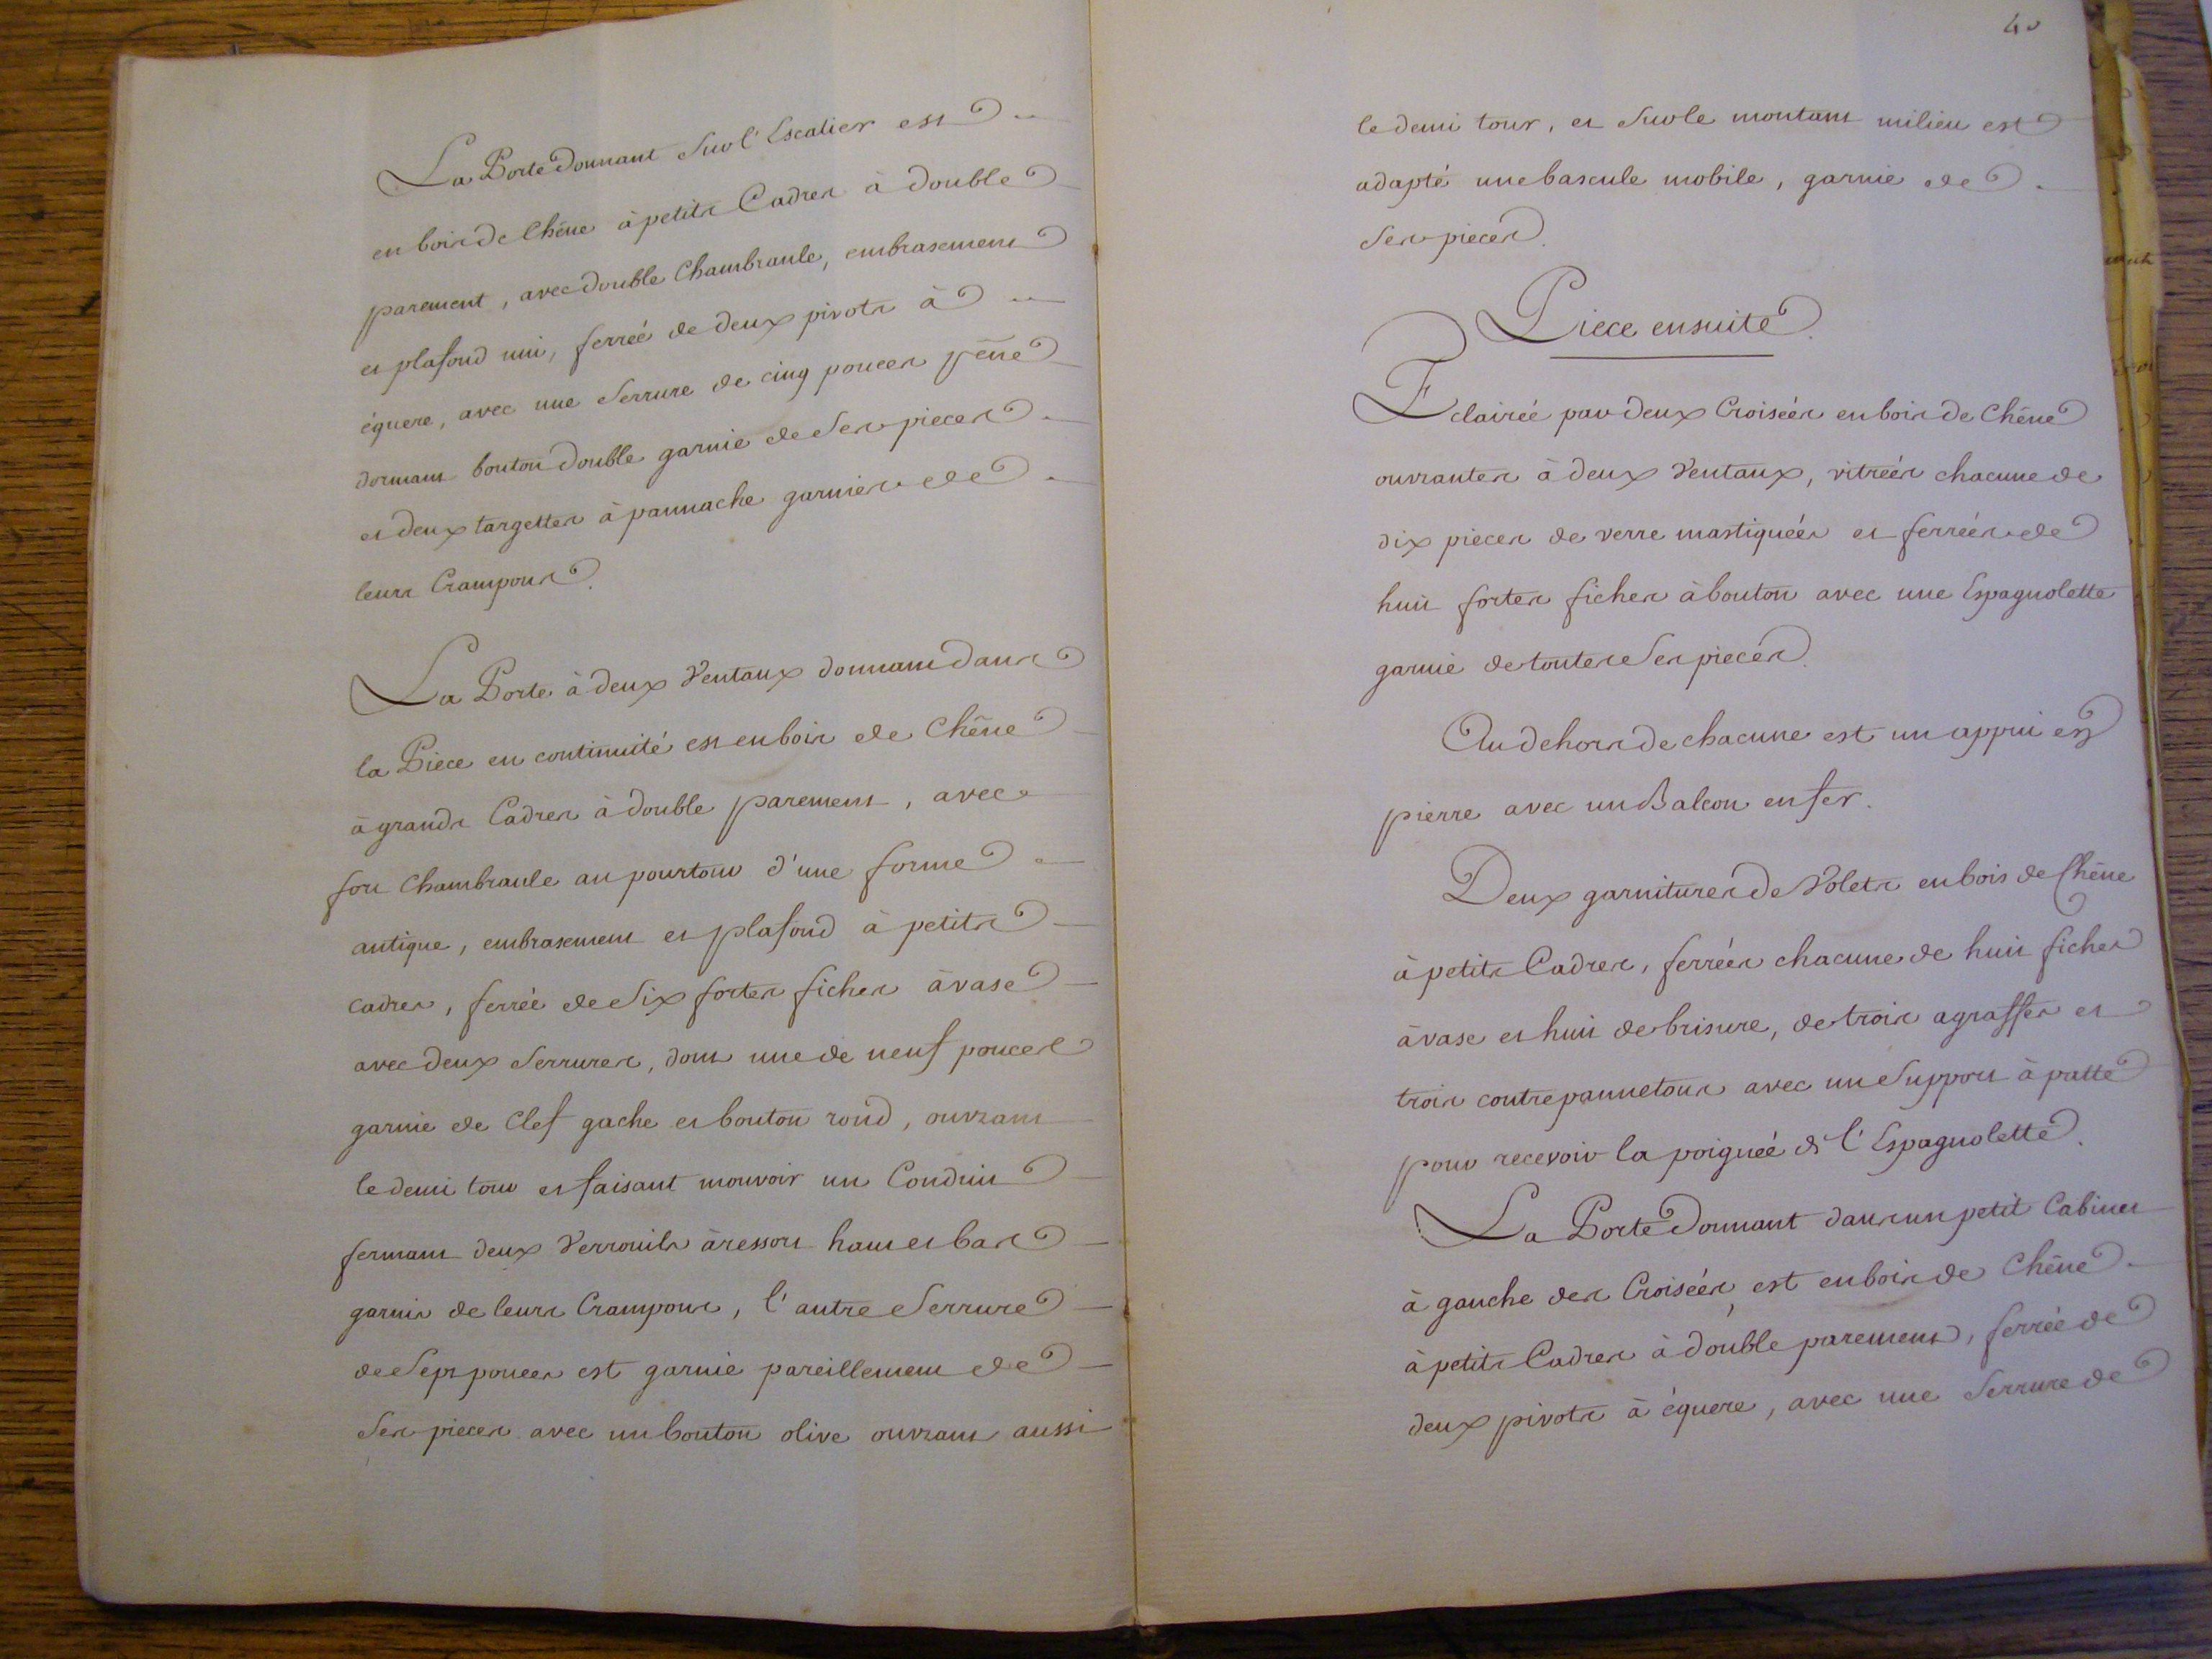 La Porte donnant sur l'Escalier est
en bois de Chêne à petits Cadres à double
parement, avec double Chambranle, embrasement
et plafond uni, ferrée de deux pivots à
équere, avec une Serrure de cinq pouces pêne
dormant bouton double garnie de Ses pieces
et deux targettes à pannache garnies de
leurs Crampons.
La Porte à deux Ventaux donnant dans
la Piece en continuité est en bois de Chêne
à grands Cadres à double parement, avec
fort Chambranle au pourtour d'une forme
antique, embrasement et plafond à petits
cadres, ferrée de Six fortes fiches à vase
avec deux Serrures, dont une de neuf pouces
garnie de Clef gache et bouton rond, ouvrant
le demi tour et faisant mouvoir un Conduit
fermant deux Verrouils à ressort haut et bas
garnis de leurs Crampons, l'autre Serrure
de Sept pouces est garnie pareillement de
Ses pieces avec un bouton olive ouvrant aussi
40
le demi tour, et Sur le montant milieu est
adapté une bascule mobile, garnie de
Ses pieces.
Piece ensuite.
Eclairée par deux Croisées en bois de Chêne
ouvrantes à deux Ventaux, vitrées chacune de
dix pieces de verre mastiquées et ferrées de
huit fortes fiches à bouton avec une Espagnolette
garnie de toutes Ses pieces.
Au dehors de chacune est un appui en
pierre avec un Balcon en fer.
Deux garnitures de Volets en bois de Chêne
à petits Cadres, ferrées chacune de huit fiches
à vase et huit de brisure, de trois agraffes et
trois contrepannetons avec un Support à patte
pour recevoir la poignée de l'Espagnolette.
La Porte donnant dans un petit Cabinet
à gauche des Croisées, est en bois de Chêne
à petits Cadres à double parement, ferrée de
deux pivots à équere, avec une Serrure de